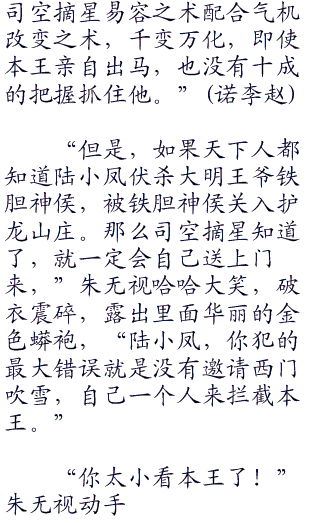 司空摘星易容之术配合气机
改变之术，千变万化，即使
本王亲自出马，也没有十成
的把握抓住他。”（诺李赵）
“但是，如果天下人都
知道陆小凤伏杀大明王爷铁
胆神侯，被铁胆神侯关入护
龙山庄。那么司空摘星知道
了，就一定会自己送上门
来，”朱无视哈哈大笑，破
衣震碎，露出里面华丽的金
色蟒袍，“陆小凤，你犯的
最大错误就是没有邀请西门
吹雪，自己一个人来拦截本
王。”
“你太小看本王了！”
朱无视动手